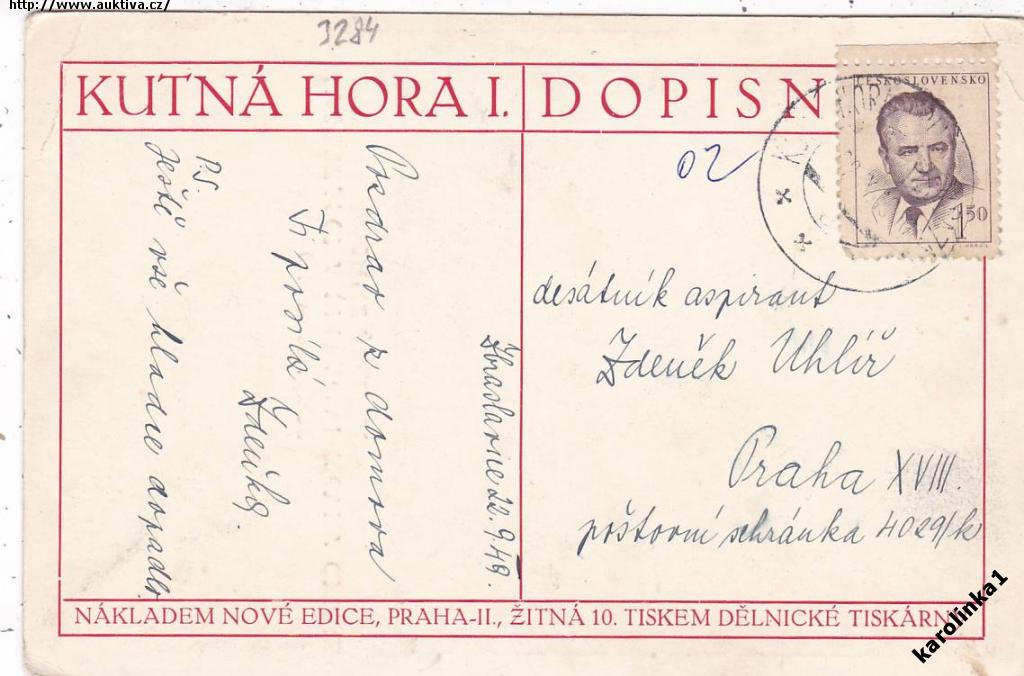 http://www.auktiva.cz/
3284
KUTNÁ HORA I. DOPISN
ČESKOSLOVENSKO
1,50
02
Zbraslavice 22.9.49.
Pozdrav z domova
Ti posílá
Zdeňka.
P.S.
Ještě vše hladce dopadlo.
desátník aspirant
Zdeněk Uhlíř
Praha XVIII.
poštovní schránka 4029/k
NÁKLADEM NOVÉ EDICE, PRAHA-II., ŽITNÁ 10. TISKEM DĚLNICKÉ TISKÁRN
karolinka1